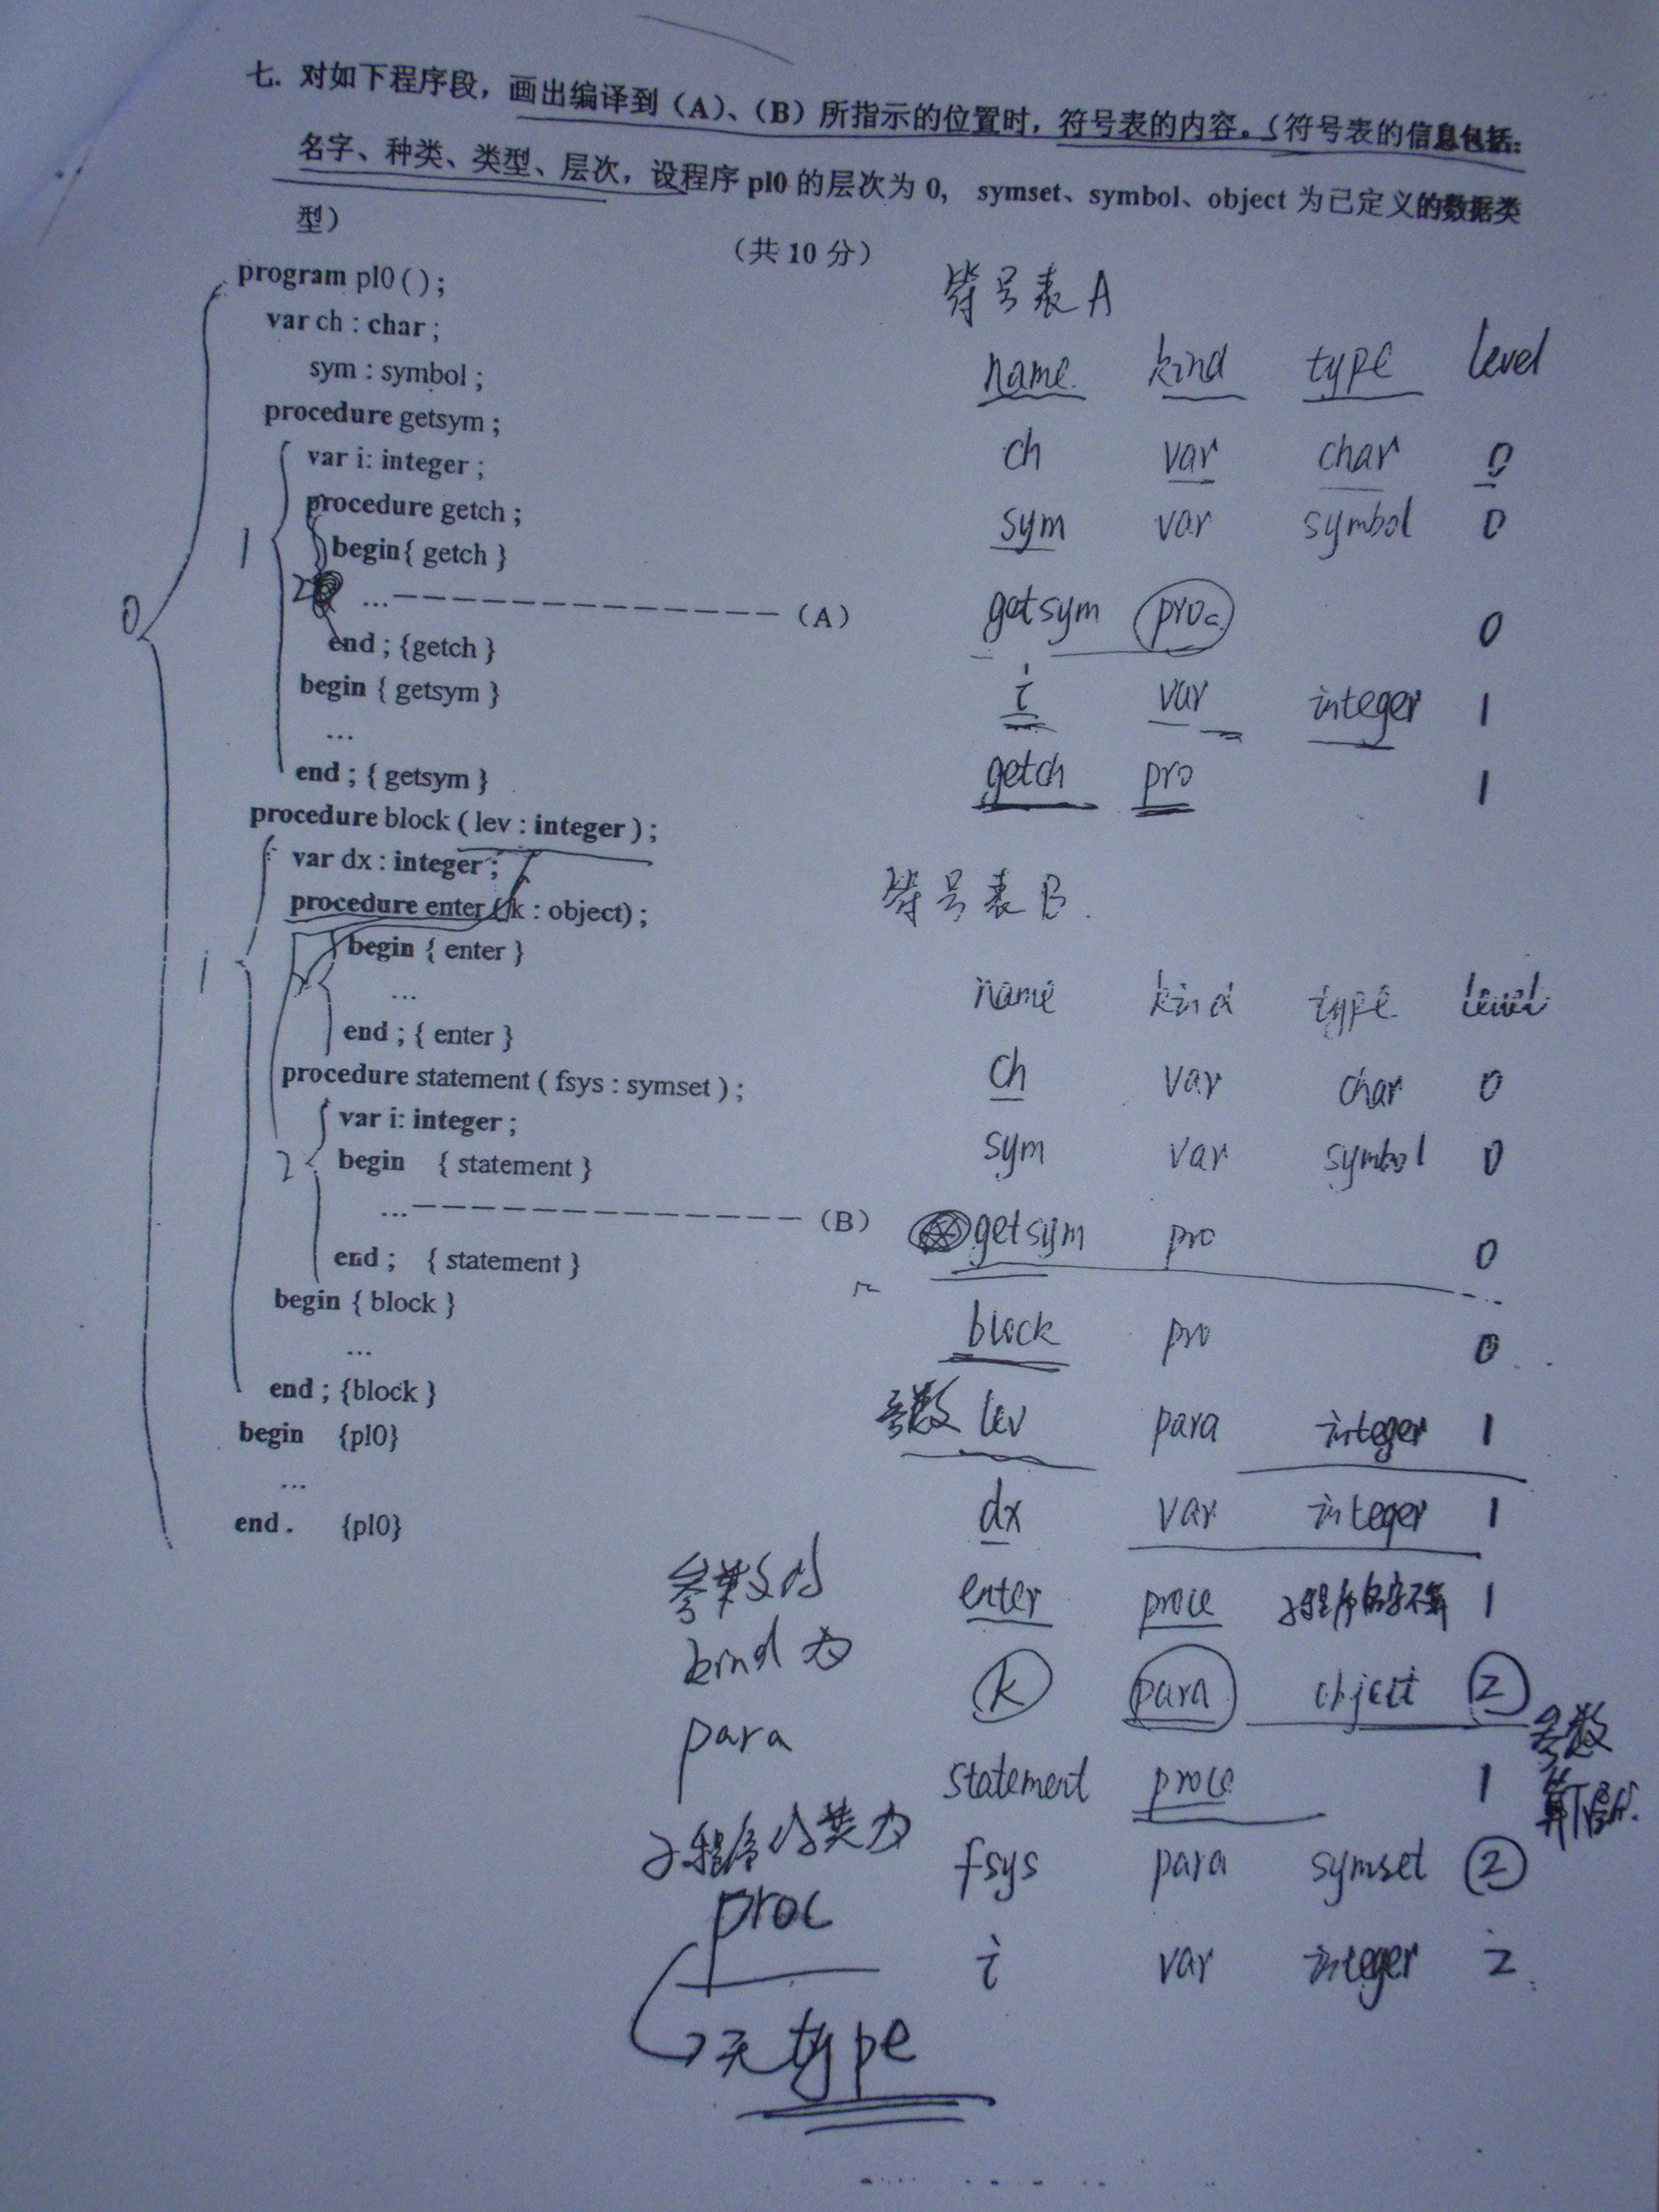 七. 对如下程序段，画出编译到（A）、（B）所指示的位置时，符号表的内容。（符号表的信息包括：
名字、种类、类型、层次，设程序 pl0 的层次为 0， symset、symbol、object 为已定义的数据类
型）
（共 10 分）
program pl0 ( ) ;
var ch : char ;
sym : symbol ;
procedure getsym ;
var i: integer ;
procedure getch ;
begin{ getch }
... -------------- （A）
end ; {getch }
begin { getsym }
...
end ; { getsym }
procedure block ( lev : integer ) ;
var dx : integer ;
procedure enter ( k : object) ;
begin { enter }
...
end ; { enter }
procedure statement ( fsys : symset ) ;
var i: integer ;
begin { statement }
... -------------- （B）
end ; { statement }
begin { block }
...
end ; {block }
begin {pl0}
...
end . {pl0}
0
1
2
1
2
符号表 A
name kind type level
ch var char 0
sym var symbol 0
getsym proc 0
i var integer 1
getch pro 1
符号表 B
name kind type level
ch var char 0
sym var symbol 0
getsym pro 0
block pro 0
参数 lev para integer 1
dx var integer 1
enter proce 子程序名字不算 1
k para object 2
参数
算下层
statement proce 1
fsys para symset 2
i var integer 2
参数的
kind 为
para
子程序 种类为
proc
无 type